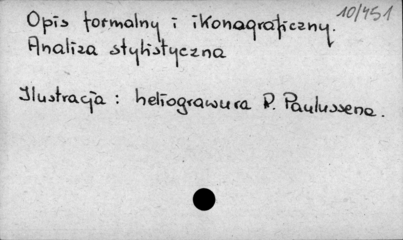 10/451
Opis formalny i ikonograficzny.
Analiza stylistyczna
Ilustracja : heliograwura P. Paulussena.